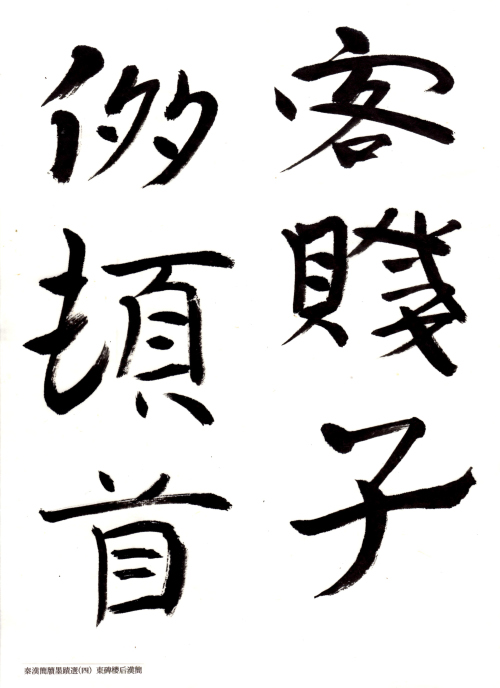 客賤子
侈頓首
秦漢簡牘墨蹟選(四) 東碑樓后漢簡